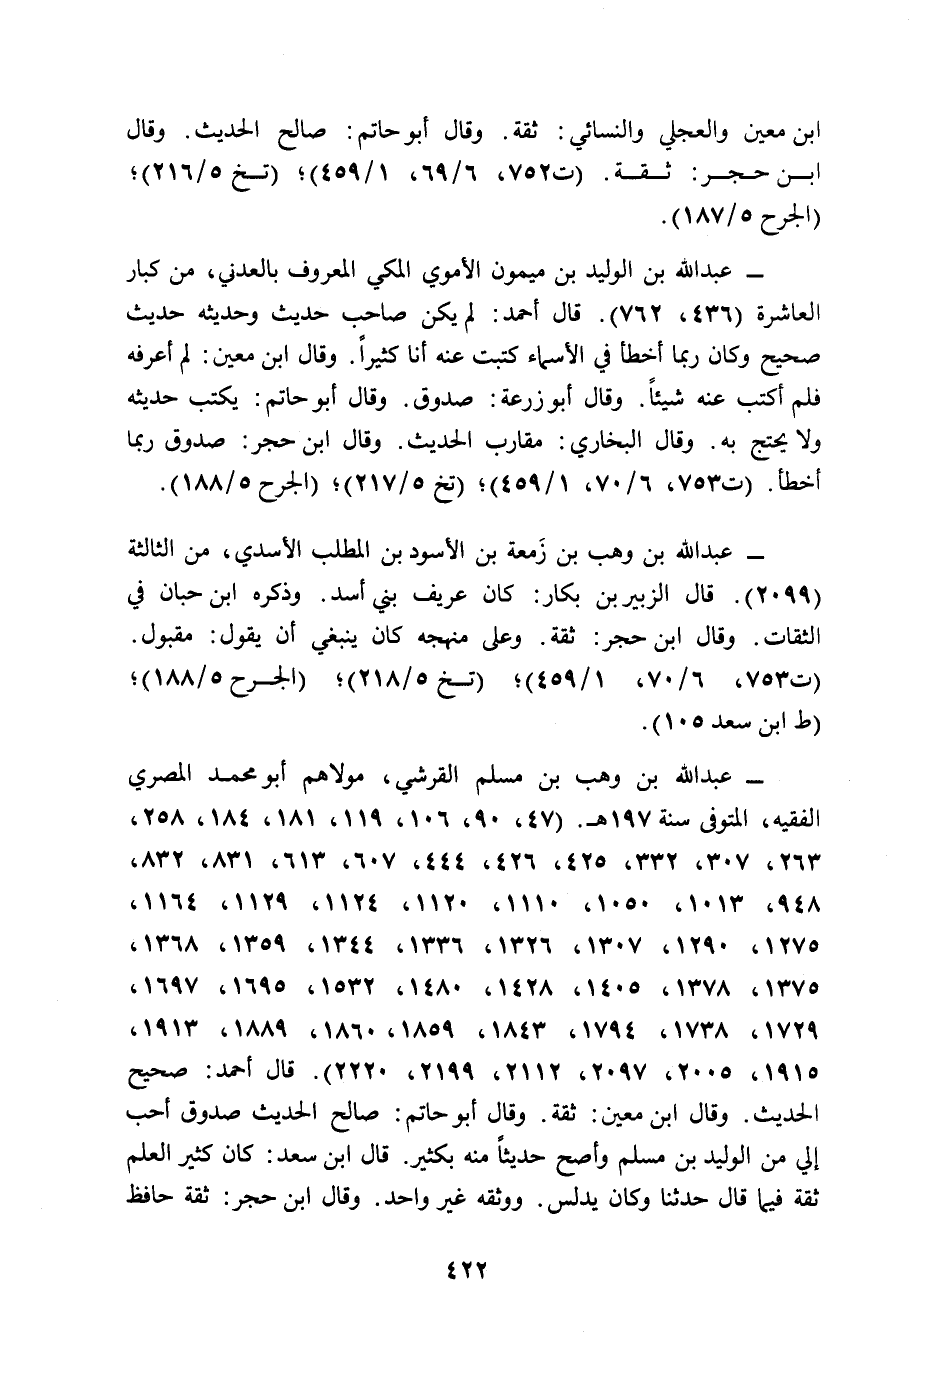 ابن معين والعجلي والنسائي: ثقة. وقال أبو حاتم: صالح الحديث. وقال
ابـن حجـر: ثـقـة. (ت٧٥٢، ٦٩/٦، ٤٥٩/١)؛ (تـخ ٢١٦/٥)؛
(الجرح ١٨٧/٥).
ـ عبدالله بن الوليد بن ميمون الأموي المكي المعروف بالعدني، من كبار
العاشرة (٤٣٦، ٧٦٢). قال أحمد: لم يكن صاحب حديث وحديثه حديث
صحيح وكان ربما أخطأ في الأسماء كتبت عنه أنا كثيراً. وقال ابن معين: لم أعرفه
فلم أكتب عنه شيئاً. وقال أبو زرعة: صدوق. وقال أبو حاتم: يكتب حديثه
ولا يحتج به. وقال البخاري: مقارب الحديث. وقال ابن حجر: صدوق ربما
أخطأ. (ت٧٥٣، ٧٠/٦، ٤٥٩/١)؛ (تخ ٢١٧/٥)؛ (الجرح ١٨٨/٥).
ـ عبدالله بن وهب بن زَمعة بن الأسود بن المطلب الأسدي، من الثالثة
(٢٠٩٩). قال الزبير بن بكار: كان عريف بني أسد. وذكره ابن حبان في
الثقات. وقال ابن حجر: ثقة. وعلى منهجه كان ينبغي أن يقول: مقبول.
(ت٧٥٣، ٧٠/٦، ٤٥٩/١)؛ (تـخ ٢١٨/٥)؛ (الجـرح ١٨٨/٥)؛
(ط ابن سعد ١٠٥).
ـ عبدالله بن وهب بن مسلم القرشي، مولاهم أبو محمد المصري
الفقيه، المتوفى سنة ١٩٧هـ. (٤٧، ٩٠، ١٠٦، ١١٩، ١٨١، ١٨٤، ٢٥٨،
٢٦٣، ٣٠٧، ٣٣٢، ٤٢٥، ٤٢٦، ٤٤٤، ٦٠٧، ٦١٣، ٨٣١، ٨٣٢،
٩٤٨، ١٠١٣، ١٠٥٠، ١١١٠، ١١٢٠، ١١٢٤، ١١٢٩، ١١٦٤،
١٢٧٥، ١٢٩٠، ١٣٠٧، ١٣٢٦، ١٣٣٦، ١٣٤٤، ١٣٥٩، ١٣٦٨،
١٣٧٥، ١٣٧٨، ١٤٠٥، ١٤٢٨، ١٤٨٠، ١٥٣٢، ١٦٩٥، ١٦٩٧،
١٧٢٩، ١٧٣٨، ١٧٩٤، ١٨٤٣، ١٨٥٩، ١٨٦٠، ١٨٨٩، ١٩١٣،
١٩١٥، ٢٠٠٥، ٢٠٩٧، ٢١١٢، ٢١٩٩، ٢٢٢٠). قال أحمد: صحيح
الحديث. وقال ابن معين: ثقة. وقال أبو حاتم: صالح الحديث صدوق أحب
إلي من الوليد بن مسلم وأصح حديثاً منه بكثير. قال ابن سعد: كان كثير العلم
ثقة فيما قال حدثنا وكان يدلس. ووثقه غير واحد. وقال ابن حجر: ثقة حافظ
٤٢٢